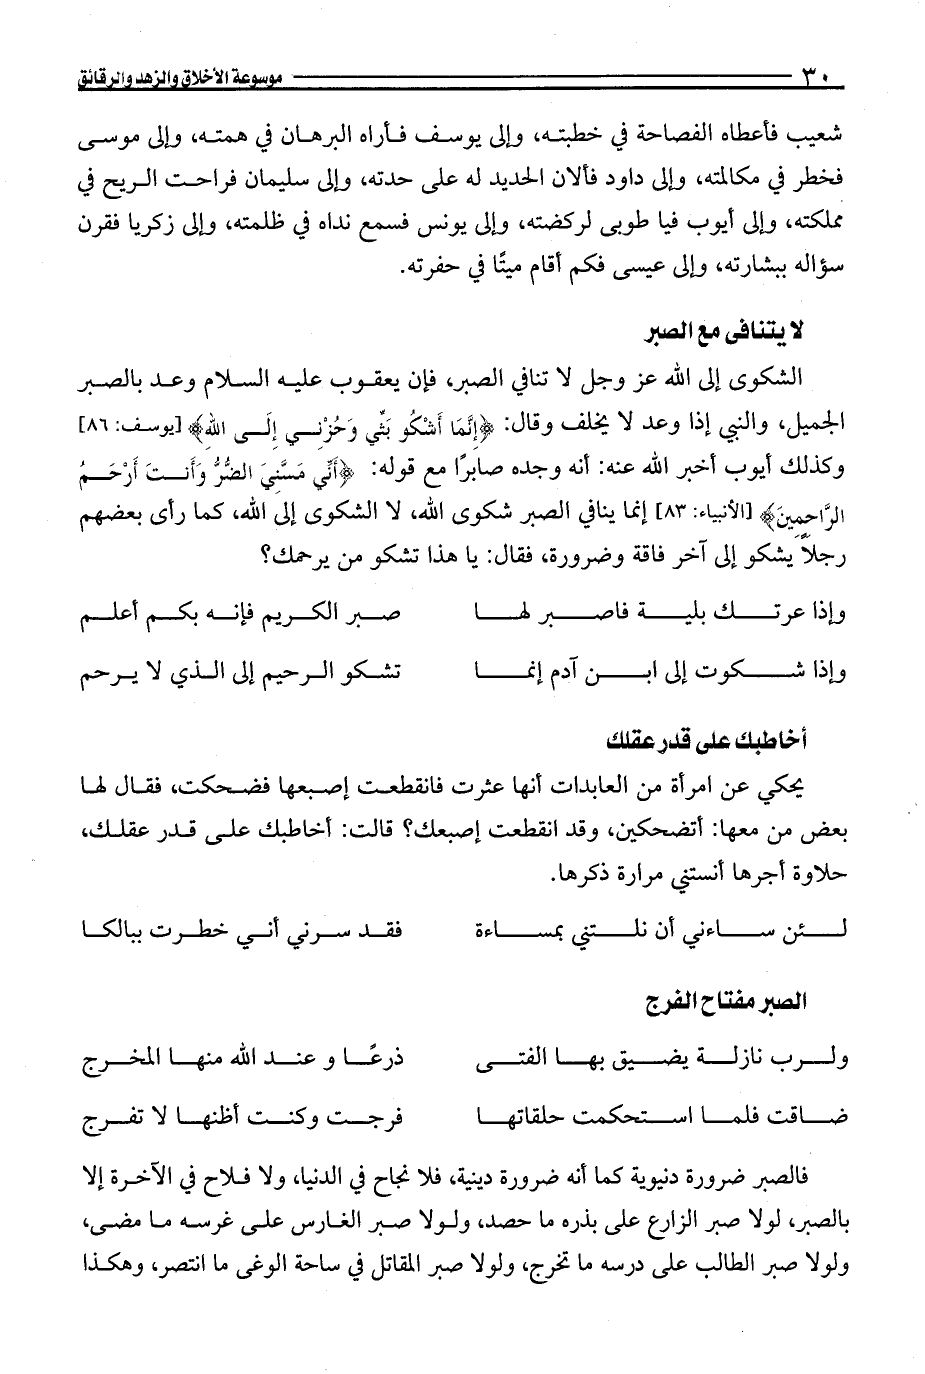 ٣٠ موسوعة الأخلاق والزهد والرقائق
شعيب فأعطاه الفصاحة في خطبته، وإلى يوسف فأراه البرهان في همته، وإلى موسى
فخطر في مكالمته، وإلى داود فألان الحديد له على حدته، وإلى سليمان فراحت الريح في
مملكته، وإلى أيوب فيا طوبى لركضته، وإلى يونس فسمع نداه في ظلمته، وإلى زكريا فقرن
سؤاله ببشارته، وإلى عيسى فكم أقام ميتًا في حفرته.
لا يتنافى مع الصبر
الشكوى إلى الله عز وجل لا تنافي الصبر، فإن يعقوب عليه السلام وعد بالصبر
الجميل، والنبي إذا وعد لا يخلف وقال: ﴿إِنَّمَا أَشْكُو بَثِّي وَحُزْنِي إِلَى الله﴾ [يوسف: ٨٦]
وكذلك أيوب أخبر الله عنه: أنه وجده صابرًا مع قوله: ﴿أَنِّي مَسَّنِيَ الضُّرُّ وَأَنتَ أَرْحَمُ
الرَّاحِمِينَ﴾ [الأنبياء: ٨٣] إنما ينافي الصبر شكوى الله، لا الشكوى إلى الله، كما رأى بعضهم
رجلاً يشكو إلى آخر فاقة وضرورة، فقال: يا هذا تشكو من يرحمك؟
وإذا عرتك بلية فاصبر لها صبر الكريم فإنه بكم أعلم
وإذا شكوت إلى ابن آدم إنما تشكو الرحيم إلى الذي لا يرحم
أخاطبك على قدر عقلك
يحكي عن امرأة من العابدات أنها عثرت فانقطعت إصبعها فضحكت، فقال لها
بعض من معها: أتضحكين، وقد انقطعت إصبعك؟ قالت: أخاطبك على قدر عقلك،
حلاوة أجرها أنستني مرارة ذكرها.
لئن ساءني أن نلتني بمساءة فقد سرني أني خطرت ببالكا
الصبر مفتاح الفرج
ولرب نازلة يضيق بها الفتى ذرعًا و عند الله منها المخرج
ضاقت فلما استحكمت حلقاتها فرجت وكنت أظنها لا تفرج
فالصبر ضرورة دنيوية كما أنه ضرورة دينية، فلا نجاح في الدنيا، ولا فلاح في الآخرة إلا
بالصبر، لولا صبر الزارع على بذره ما حصد، ولولا صبر الغارس على غرسه ما مضى،
ولولا صبر الطالب على درسه ما تخرج، ولولا صبر المقاتل في ساحة الوغى ما انتصر، وهكذا